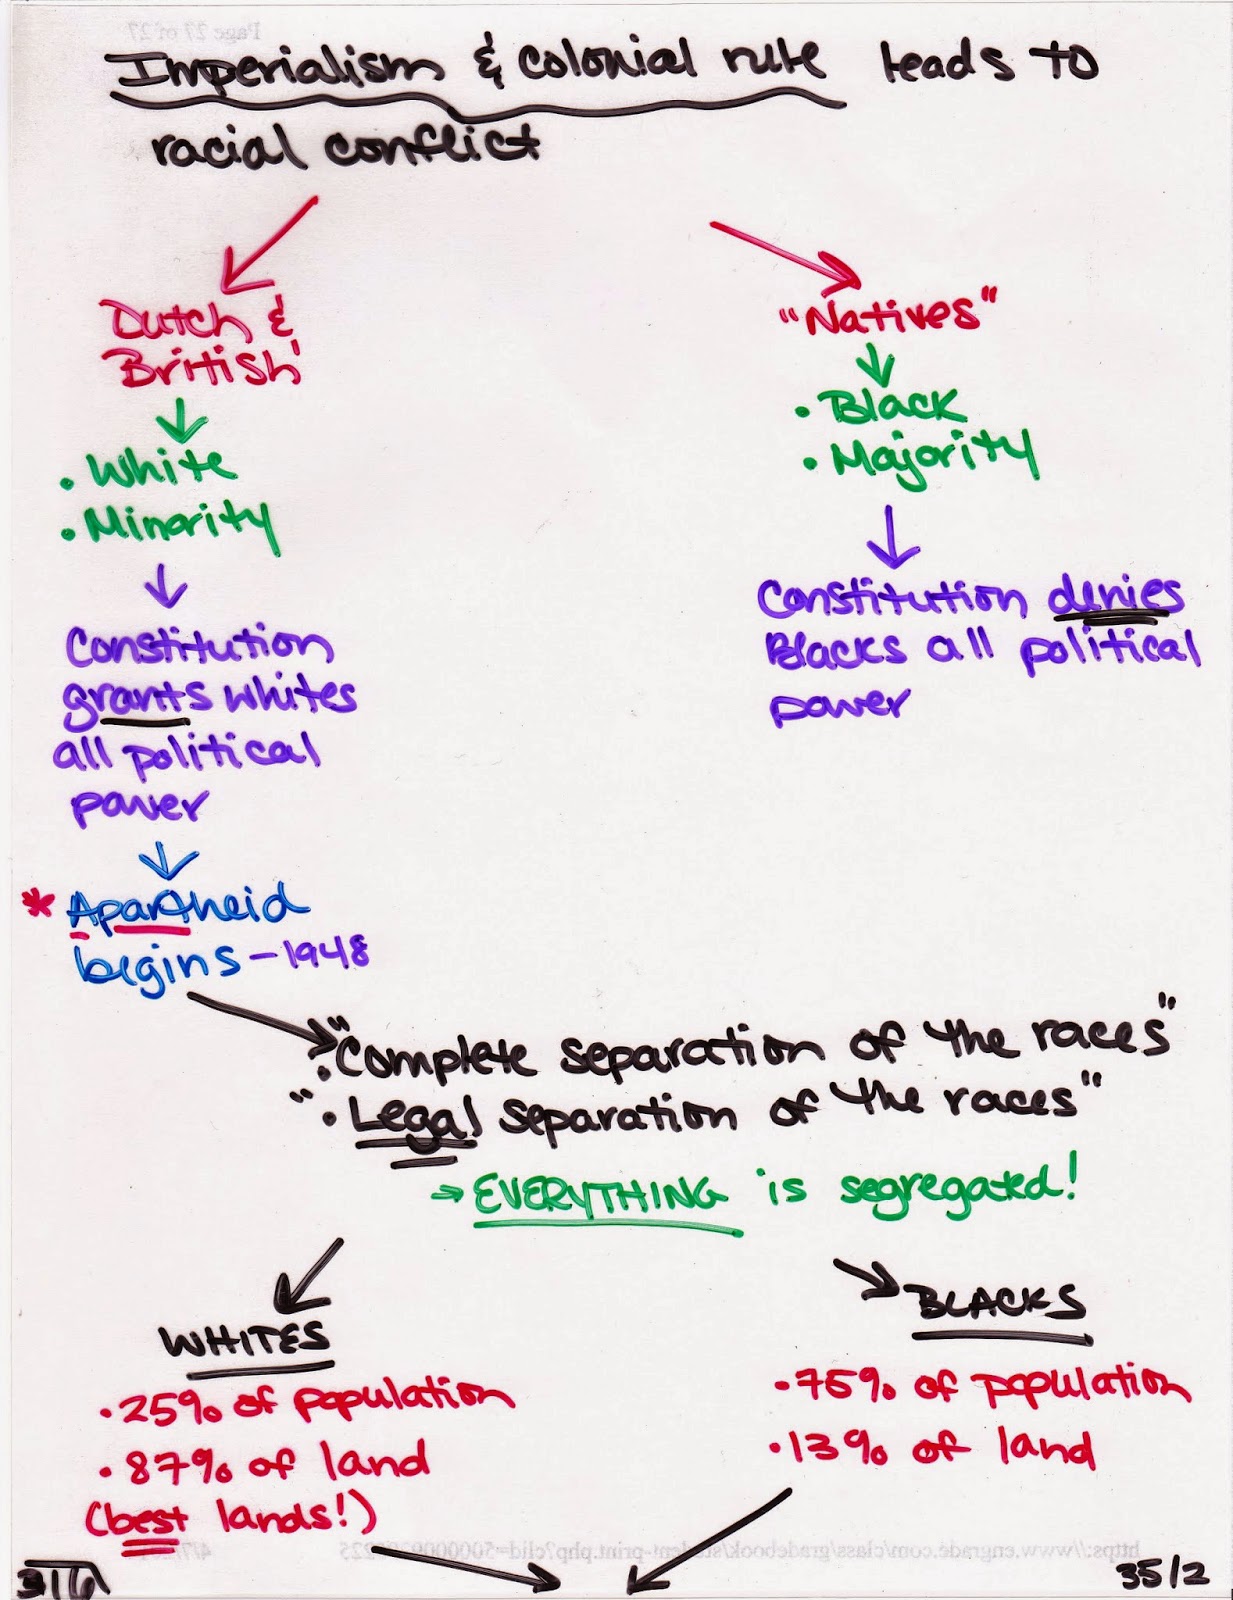 Page 27 of 27
Imperialism & colonial rule leads to
racial conflict
Dutch &
British
"Natives"
• White
• Minority
• Black
• Majority
Constitution
grants whites
all political
power
Constitution denies
Blacks all political
power
* Apartheid
begins - 1948
". Complete separation of the races"
". Legal separation of the races"
→ EVERYTHING is segregated!
WHITES
• 25% of population
• 87% of land
(best lands!)
BLACKS
• 75% of population
• 13% of land
35/2